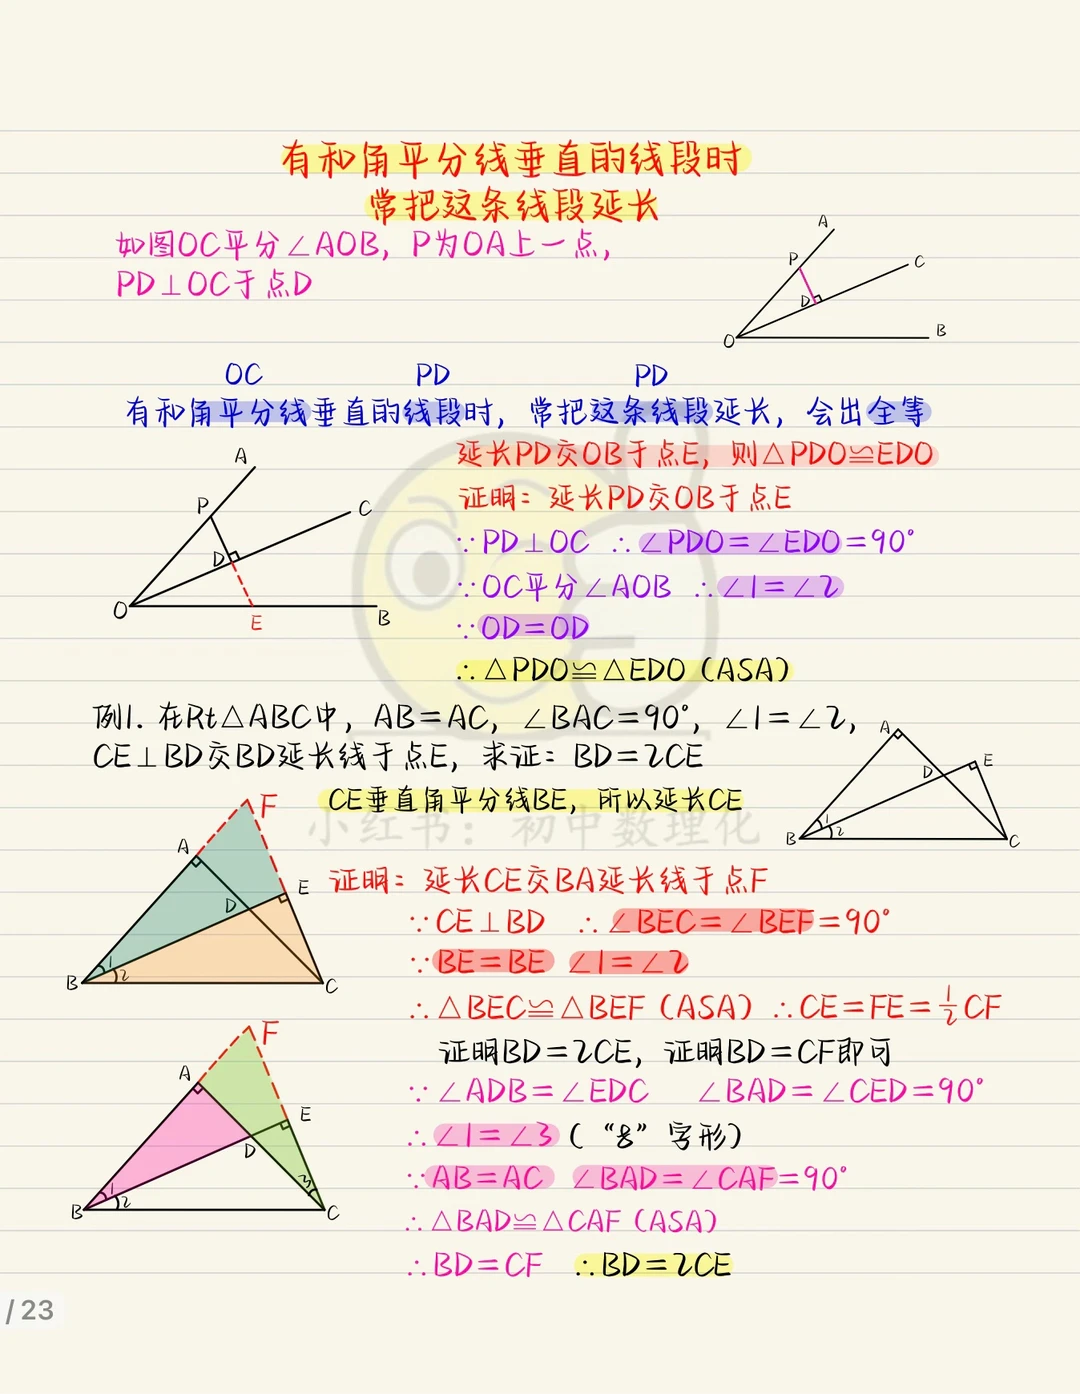 有和角平分线垂直的线段时
常把这条线段延长
如图OC平分∠AOB，P为OA上一点，
PD⊥OC于点D
A
P
C
D
O
B
OC PD PD
有和角平分线垂直的线段时，常把这条线段延长，会出全等
延长PD交OB于点E，则△PDO≌EDO
证明：延长PD交OB于点E
∵PD⊥OC ∴∠PDO=∠EDO=90°
∵OC平分∠AOB ∴∠1=∠2
∵OD=OD
∴△PDO≌△EDO（ASA）
A
P
C
D
O
E
B
例1. 在Rt△ABC中，AB=AC，∠BAC=90°，∠1=∠2，
CE⊥BD交BD延长线于点E，求证：BD=2CE
A
D
E
B
1
2
C
CE垂直角平分线BE，所以延长CE
小红书：初中数理化
F
A
E
D
B
1
2
C
证明：延长CE交BA延长线于点F
∵CE⊥BD ∴∠BEC=∠BEF=90°
∵BE=BE ∠1=∠2
∴△BEC≌△BEF（ASA）∴CE=FE=1/2CF
证明BD=2CE，证明BD=CF即可
∵∠ADB=∠EDC ∠BAD=∠CED=90°
∴∠1=∠3（“8”字形）
∵AB=AC ∠BAD=∠CAF=90°
∴△BAD≌△CAF（ASA）
∴BD=CF ∴BD=2CE
F
A
E
D
B
1
2
3
C
/23